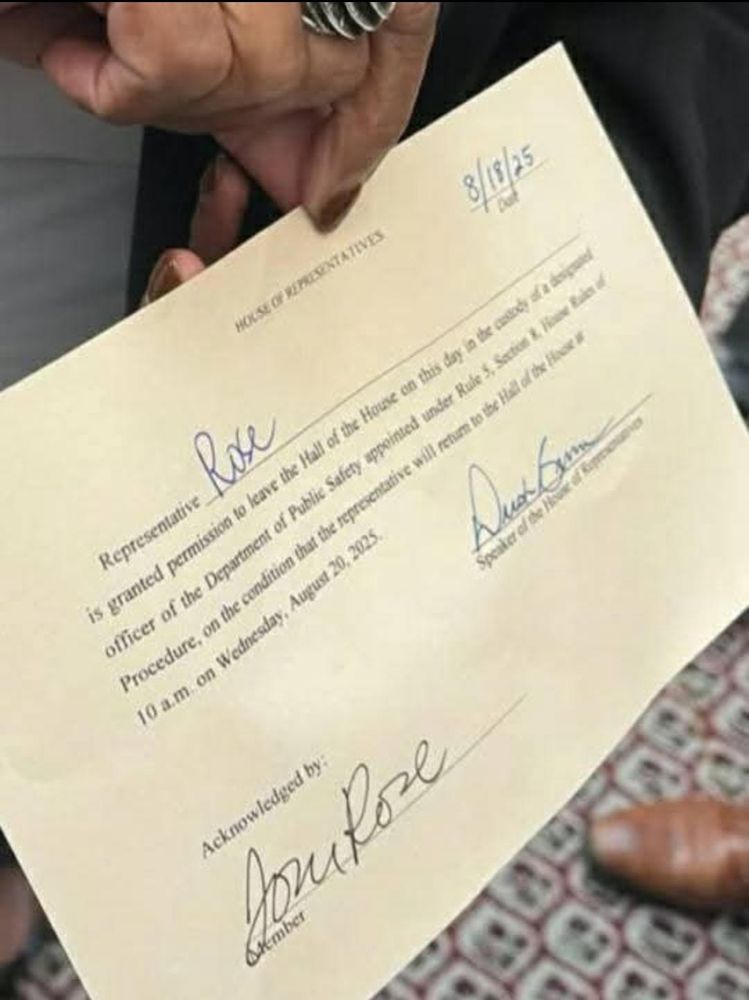 8/18/25
Date
HOUSE OF REPRESENTATIVES
Representative Rose
is granted permission to leave the Hall of the House on this day in the custody of a designated
officer of the Department of Public Safety appointed under Rule 5, Section 8, House Rules of
Procedure, on the condition that the representative will return to the Hall of the House at
10 a.m. on Wednesday, August 20, 2025.
Speaker of the House of Representatives
Acknowledged by:
Rose
Member